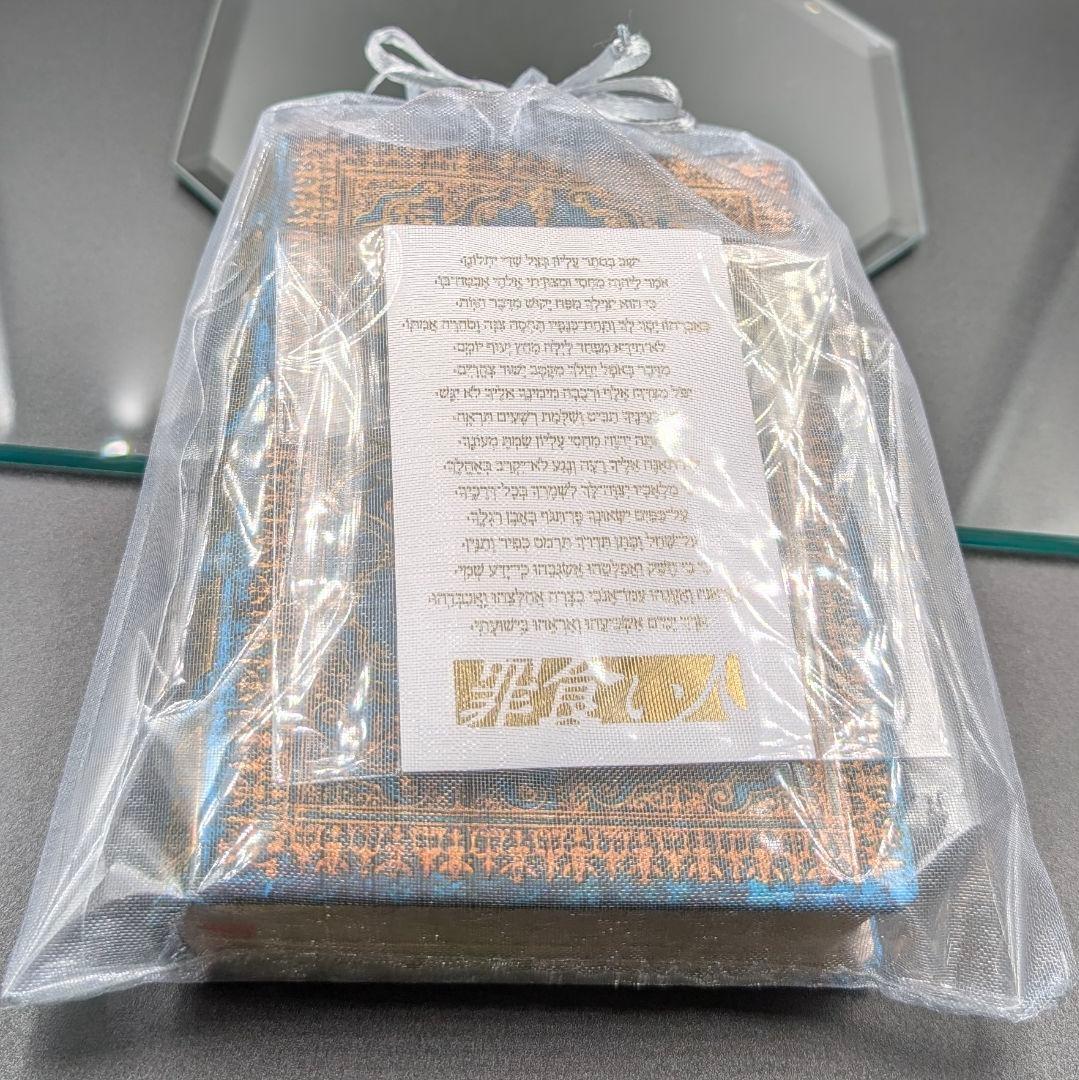 יֹשֵׁב בְּסֵתֶר עֶלְיוֹן בְּצֵל שַׁדַּי יִתְלוֹנָן׃
אֹמַר לַיהוָה מַחְסִי וּמְצוּדָתִי אֱלֹהַי אֶבְטַח־בּוֹ׃
כִּי הוּא יַצִּילְךָ מִפַּח יָקוּשׁ מִדֶּבֶר הַוּוֹת׃
בְּאֶבְרָתוֹ יָסֶךְ לָךְ וְתַחַת כְּנָפָיו תֶּחְסֶה צִנָּה וְסֹחֵרָה אֲמִתּוֹ׃
לֹא־תִירָא מִפַּחַד לָיְלָה מֵחֵץ יָעוּף יוֹמָם׃
מִדֶּבֶר בָּאֹפֶל יַהֲלֹךְ מִקֶּטֶב יָשׁוּד צָהֳרָיִם׃
יִפֹּל מִצִּדְּךָ אֶלֶף וּרְבָבָה מִימִינֶךָ אֵלֶיךָ לֹא יִגָּשׁ׃
בְּעֵינֶיךָ תַבִּיט וְשִׁלֻּמַת רְשָׁעִים תִּרְאֶה׃
אַתָּה יְהוָה מַחְסִי עֶלְיוֹן שַׂמְתָּ מְעוֹנֶךָ׃
תְאֻנֶּה אֵלֶיךָ רָעָה וְנֶגַע לֹא־יִקְרַב בְּאָהֳלֶךָ׃
מַלְאָכָיו יְצַוֶּה־לָּךְ לִשְׁמָרְךָ בְּכָל־דְּרָכֶיךָ׃
עַל־כַּפַּיִם יִשָּׂאוּנְךָ פֶּן־תִּגֹּף בָּאֶבֶן רַגְלֶךָ׃
עַל־שַׁחַל וָפֶתֶן תִּדְרֹךְ תִּרְמֹס כְּפִיר וְתַנִּין׃
כִּי בִי חָשַׁק וַאֲפַלְּטֵהוּ אֲשַׂגְּבֵהוּ כִּי־יָדַע שְׁמִי׃
יִקְרָאֵנִי וְאֶעֱנֵהוּ עִמּוֹ־אָנֹכִי בְצָרָה אֲחַלְּצֵהוּ וַאֲכַבְּדֵהוּ׃
אֹרֶךְ יָמִים אַשְׂבִּיעֵהוּ וְאַרְאֵהוּ בִּישׁוּעָתִי׃
罪食い人